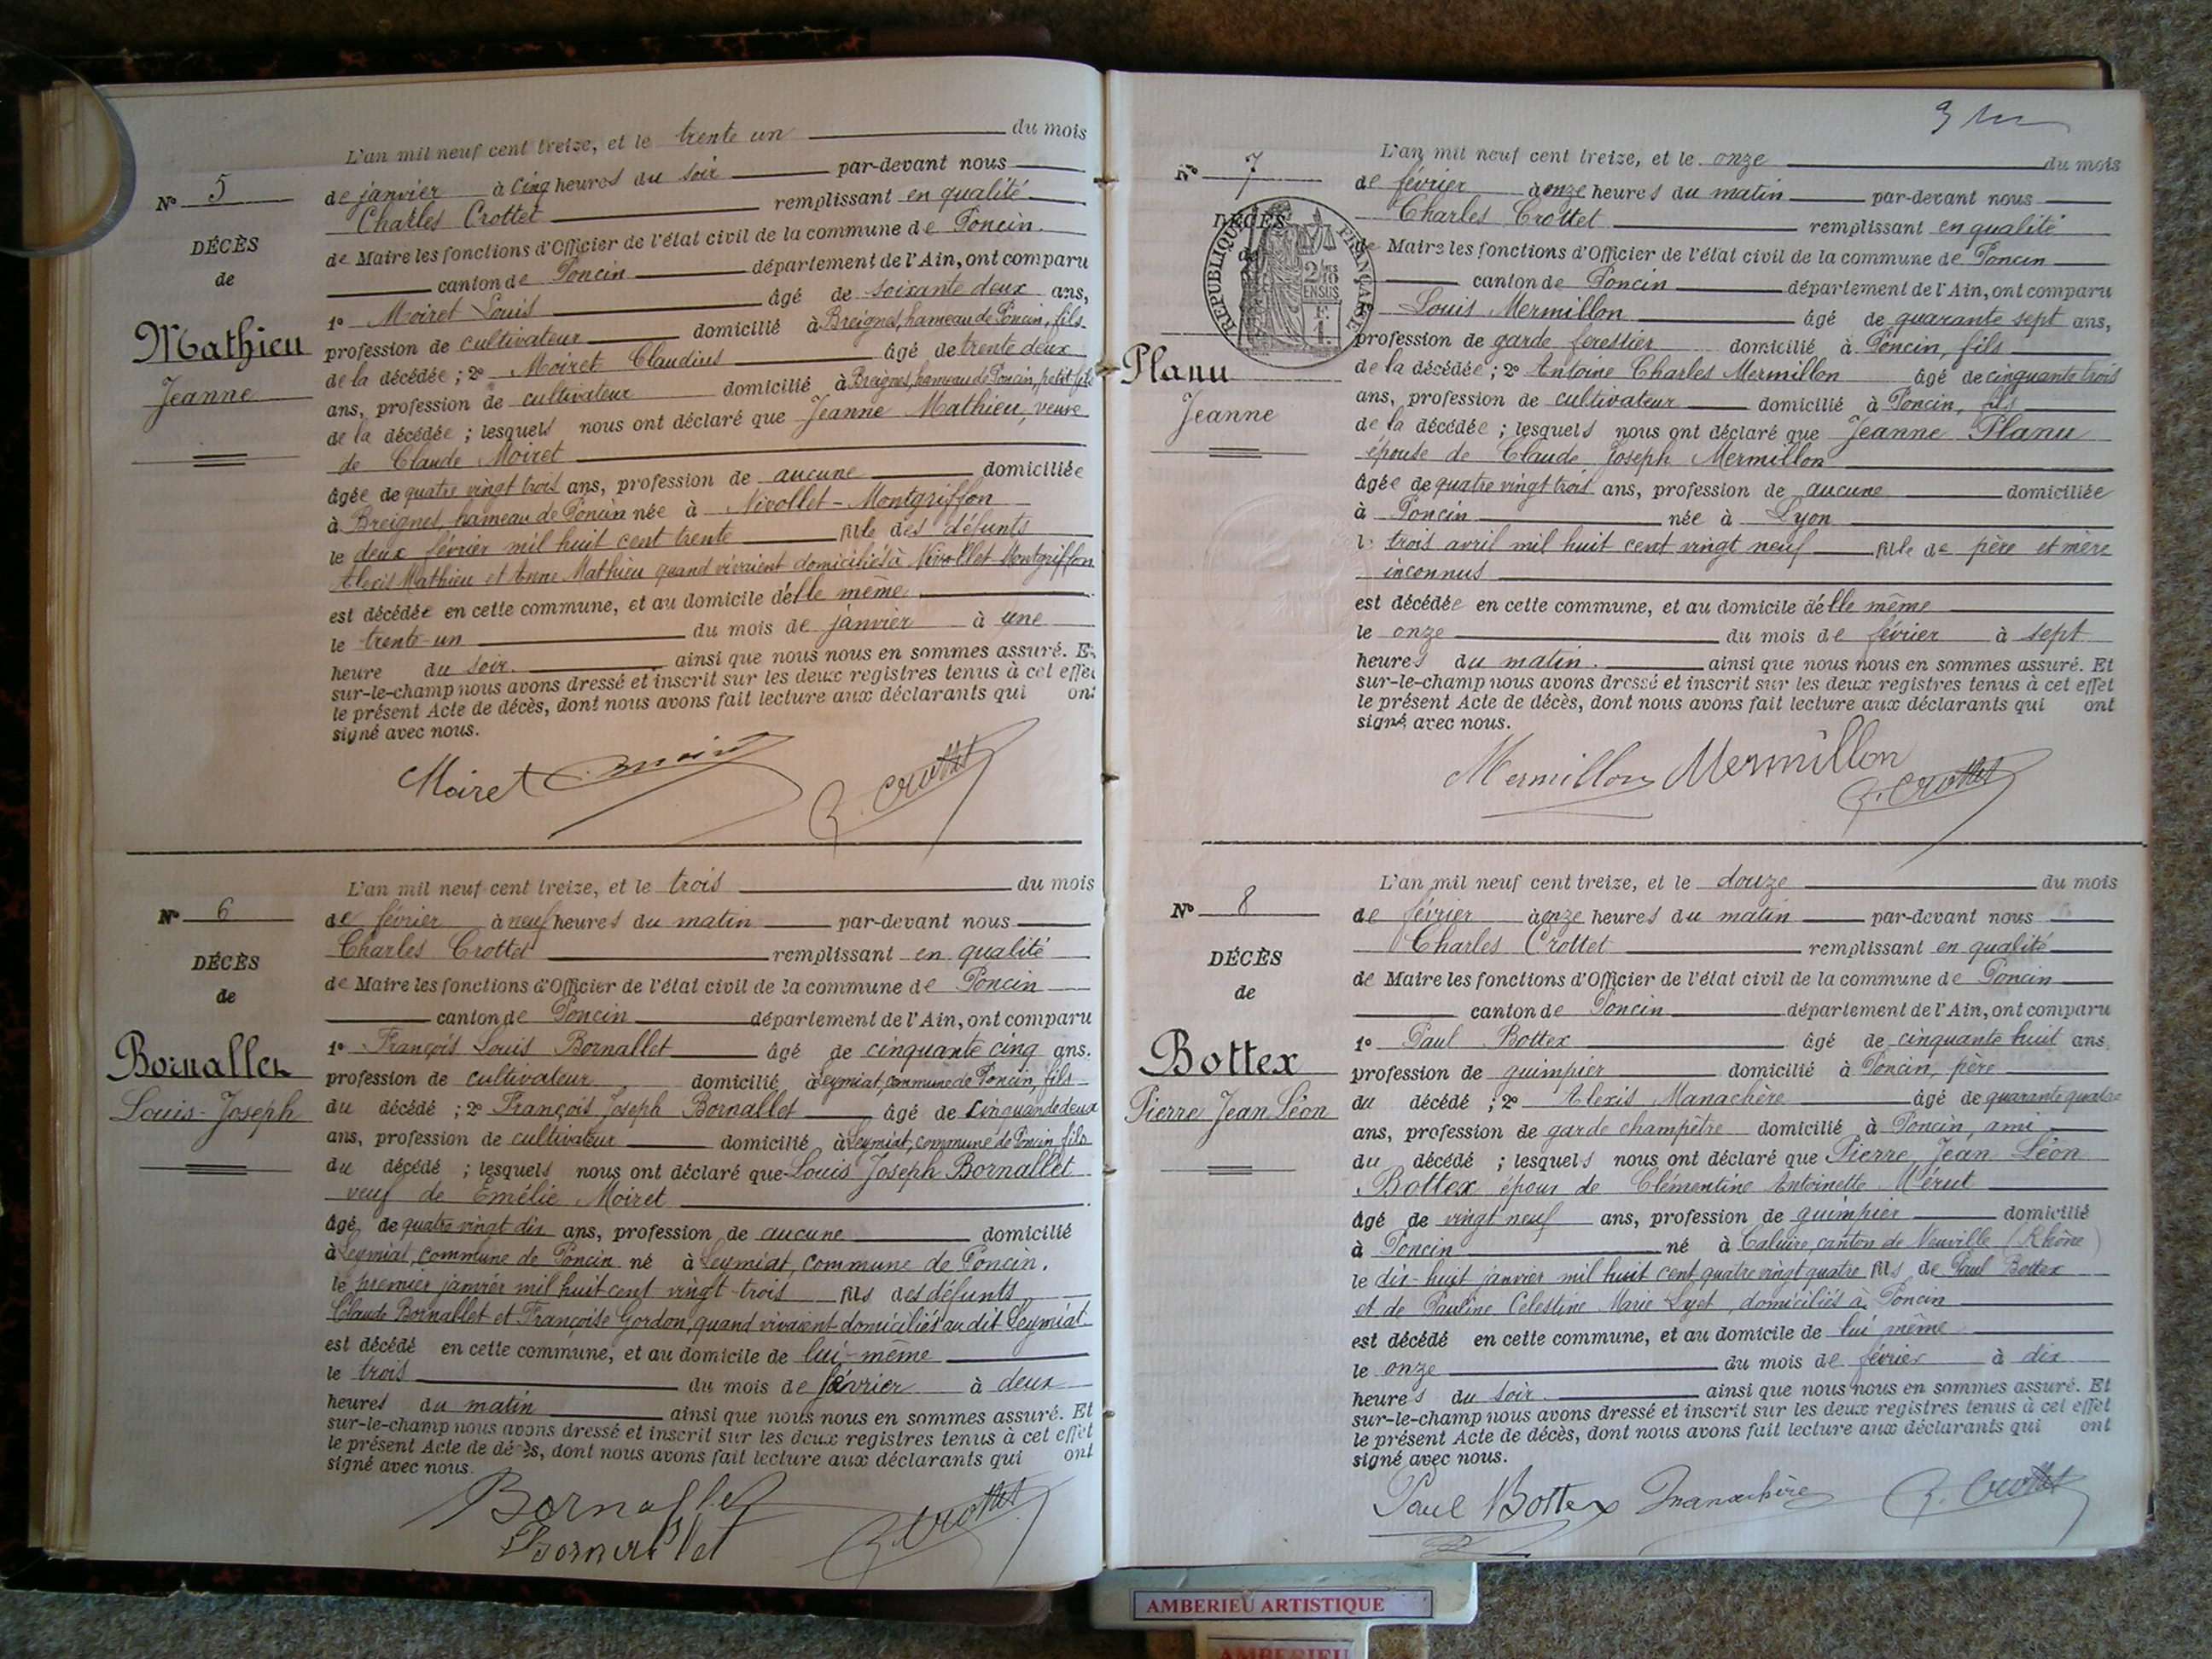 L'an mil neuf cent treize, et le trente un du mois
N° 5
de janvier à cinq heures du soir par-devant nous
Charles Crottet remplissant en qualité
DÉCÈS
de
Mathieu
Jeanne
de Maire les fonctions d'Officier de l'état civil de la commune de Poncin
canton de Poncin département de l'Ain, ont comparu
1° Moiret Louis âgé de soixante deux ans,
profession de cultivateur domicilié à Breignes, hameau de Poncin, fils
de la décédée ; 2° Moiret Claudius âgé de trente deux
ans, profession de cultivateur domicilié à Breignes, hameau de Poncin, petit fils
de la décédée ; lesquels nous ont déclaré que Jeanne Mathieu, veuve
de Claude Moiret
âgée de quatre vingt trois ans, profession de aucune domiciliée
à Breignes, hameau de Poncin née à Nivollet-Montgriffon
le deux février mil huit cent trente fille des défunts
Alexis Mathieu et Anne Mathieu quand vivaient domiciliés à Nivollet Montgriffon
est décédée en cette commune, et au domicile d'elle même
le trente-un du mois de janvier à une
heure du soir. ainsi que nous nous en sommes assuré. Et
sur-le-champ nous avons dressé et inscrit sur les deux registres tenus à cet effet
le présent Acte de décès, dont nous avons fait lecture aux déclarants qui ont
signé avec nous.
Moiret C. Crottet
L'an mil neuf cent treize, et le trois du mois
N° 6
de février à neuf heures du matin par-devant nous
Charles Crottet remplissant en qualité
DÉCÈS
de
Bornallet
Louis-Joseph
de Maire les fonctions d'Officier de l'état civil de la commune de Poncin
canton de Poncin département de l'Ain, ont comparu
1° François Louis Bornallet âgé de cinquante cinq ans.
profession de cultivateur domicilié à Leymiat, commune de Poncin, fils
du décédé ; 2° François Joseph Bornallet âgé de Cinquante deux
ans, profession de cultivateur domicilié à Leymiat, commune de Poncin fils
du décédé ; lesquels nous ont déclaré que Louis Joseph Bornallet
veuf de Emélie Moiret
âgé de quatre vingt dix ans, profession de aucune domicilié
à Leymiat, commune de Poncin né à Leymiat, commune de Poncin.
le premier janvier mil huit cent vingt-trois fils des défunts
Claude Bornallet et Françoise Gordon, quand vivaient domiciliés au dit Leymiat
est décédé en cette commune, et au domicile de lui-même
le trois du mois de février à deux
heures du matin ainsi que nous nous en sommes assuré. Et
sur-le-champ nous avons dressé et inscrit sur les deux registres tenus à cet effet
le présent Acte de décès, dont nous avons fait lecture aux déclarants qui ont
signé avec nous.
Bornallet
Bornallet C. Crottet
L'an mil neuf cent treize, et le onze du mois
N° 7
de février à onze heures du matin par-devant nous
Charles Crottet remplissant en qualité
DÉCÈS
de
RÉPUBLIQUE FRANÇAISE
2/10
EN SUS
F.
1.
Planu
Jeanne
de Maire les fonctions d'Officier de l'état civil de la commune de Poncin
canton de Poncin département de l'Ain, ont comparu
Louis Mermillon âgé de quarante sept ans,
profession de garde forestier domicilié à Poncin, fils
de la décédée ; 2° Antoine Charles Mermillon âgé de cinquante trois
ans, profession de cultivateur domicilié à Poncin, fils
de la décédée ; lesquels nous ont déclaré que Jeanne Planu
épouse de Claude Joseph Mermillon
âgée de quatre vingt trois ans, profession de aucune domiciliée
à Poncin née à Lyon
le trois avril mil huit cent vingt neuf fille de père et mère
inconnus
est décédée en cette commune, et au domicile d'elle même
le onze du mois de février à sept
heures du matin. ainsi que nous nous en sommes assuré. Et
sur-le-champ nous avons dressé et inscrit sur les deux registres tenus à cet effet
le présent Acte de décès, dont nous avons fait lecture aux déclarants qui ont
signé avec nous.
Mermillon Mermillon C. Crottet
L'an mil neuf cent treize, et le douze du mois
N° 8
de février à onze heures du matin par-devant nous
Charles Crottet remplissant en qualité
DÉCÈS
de
Bottex
Pierre Jean Léon
de Maire les fonctions d'Officier de l'état civil de la commune de Poncin
canton de Poncin département de l'Ain, ont comparu
1° Paul Bottex âgé de cinquante huit ans
profession de guimpier domicilié à Poncin, père
du décédé ; 2° Alexis Manachère âgé de quarante quatre
ans, profession de garde champêtre domicilié à Poncin, ami
du décédé ; lesquels nous ont déclaré que Pierre Jean Léon
Bottex époux de Clémentine Antoinette Mérut
âgé de vingt neuf ans, profession de guimpier domicilié
à Poncin né à Caluire, canton de Neuville (Rhône)
le dix-huit janvier mil huit cent quatre vingt quatre fils de Paul Bottex
et de Pauline Celestine Marie Lyet, domiciliés à Poncin
est décédé en cette commune, et au domicile de lui même
le onze du mois de février à dix
heures du soir. ainsi que nous nous en sommes assuré. Et
sur-le-champ nous avons dressé et inscrit sur les deux registres tenus à cet effet
le présent Acte de décès, dont nous avons fait lecture aux déclarants qui ont
signé avec nous.
Paul Bottex Manachère C. Crottet
AMBERIEU ARTISTIQUE
AMBERIEU